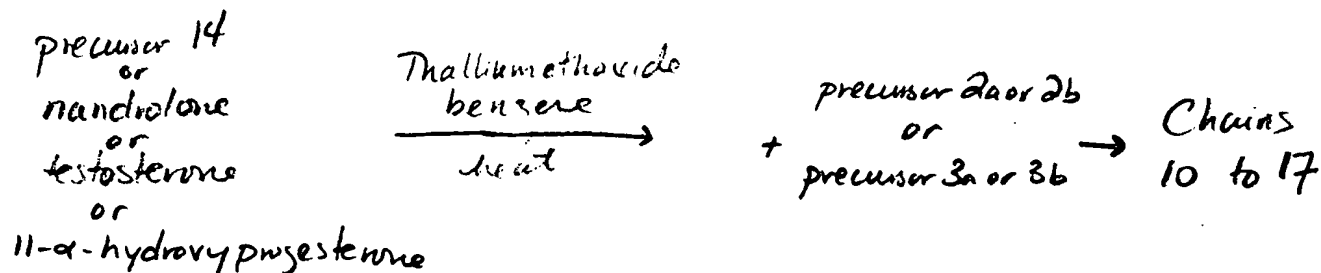 precursor 14
or
nandrolone
or
testosterone
or
11-α-hydroxyprogesterone
Thalliummethoxide
benzene
heat
+
precursor 2a or 2b
or
precursor 3a or 3b
Chains
10 to 17